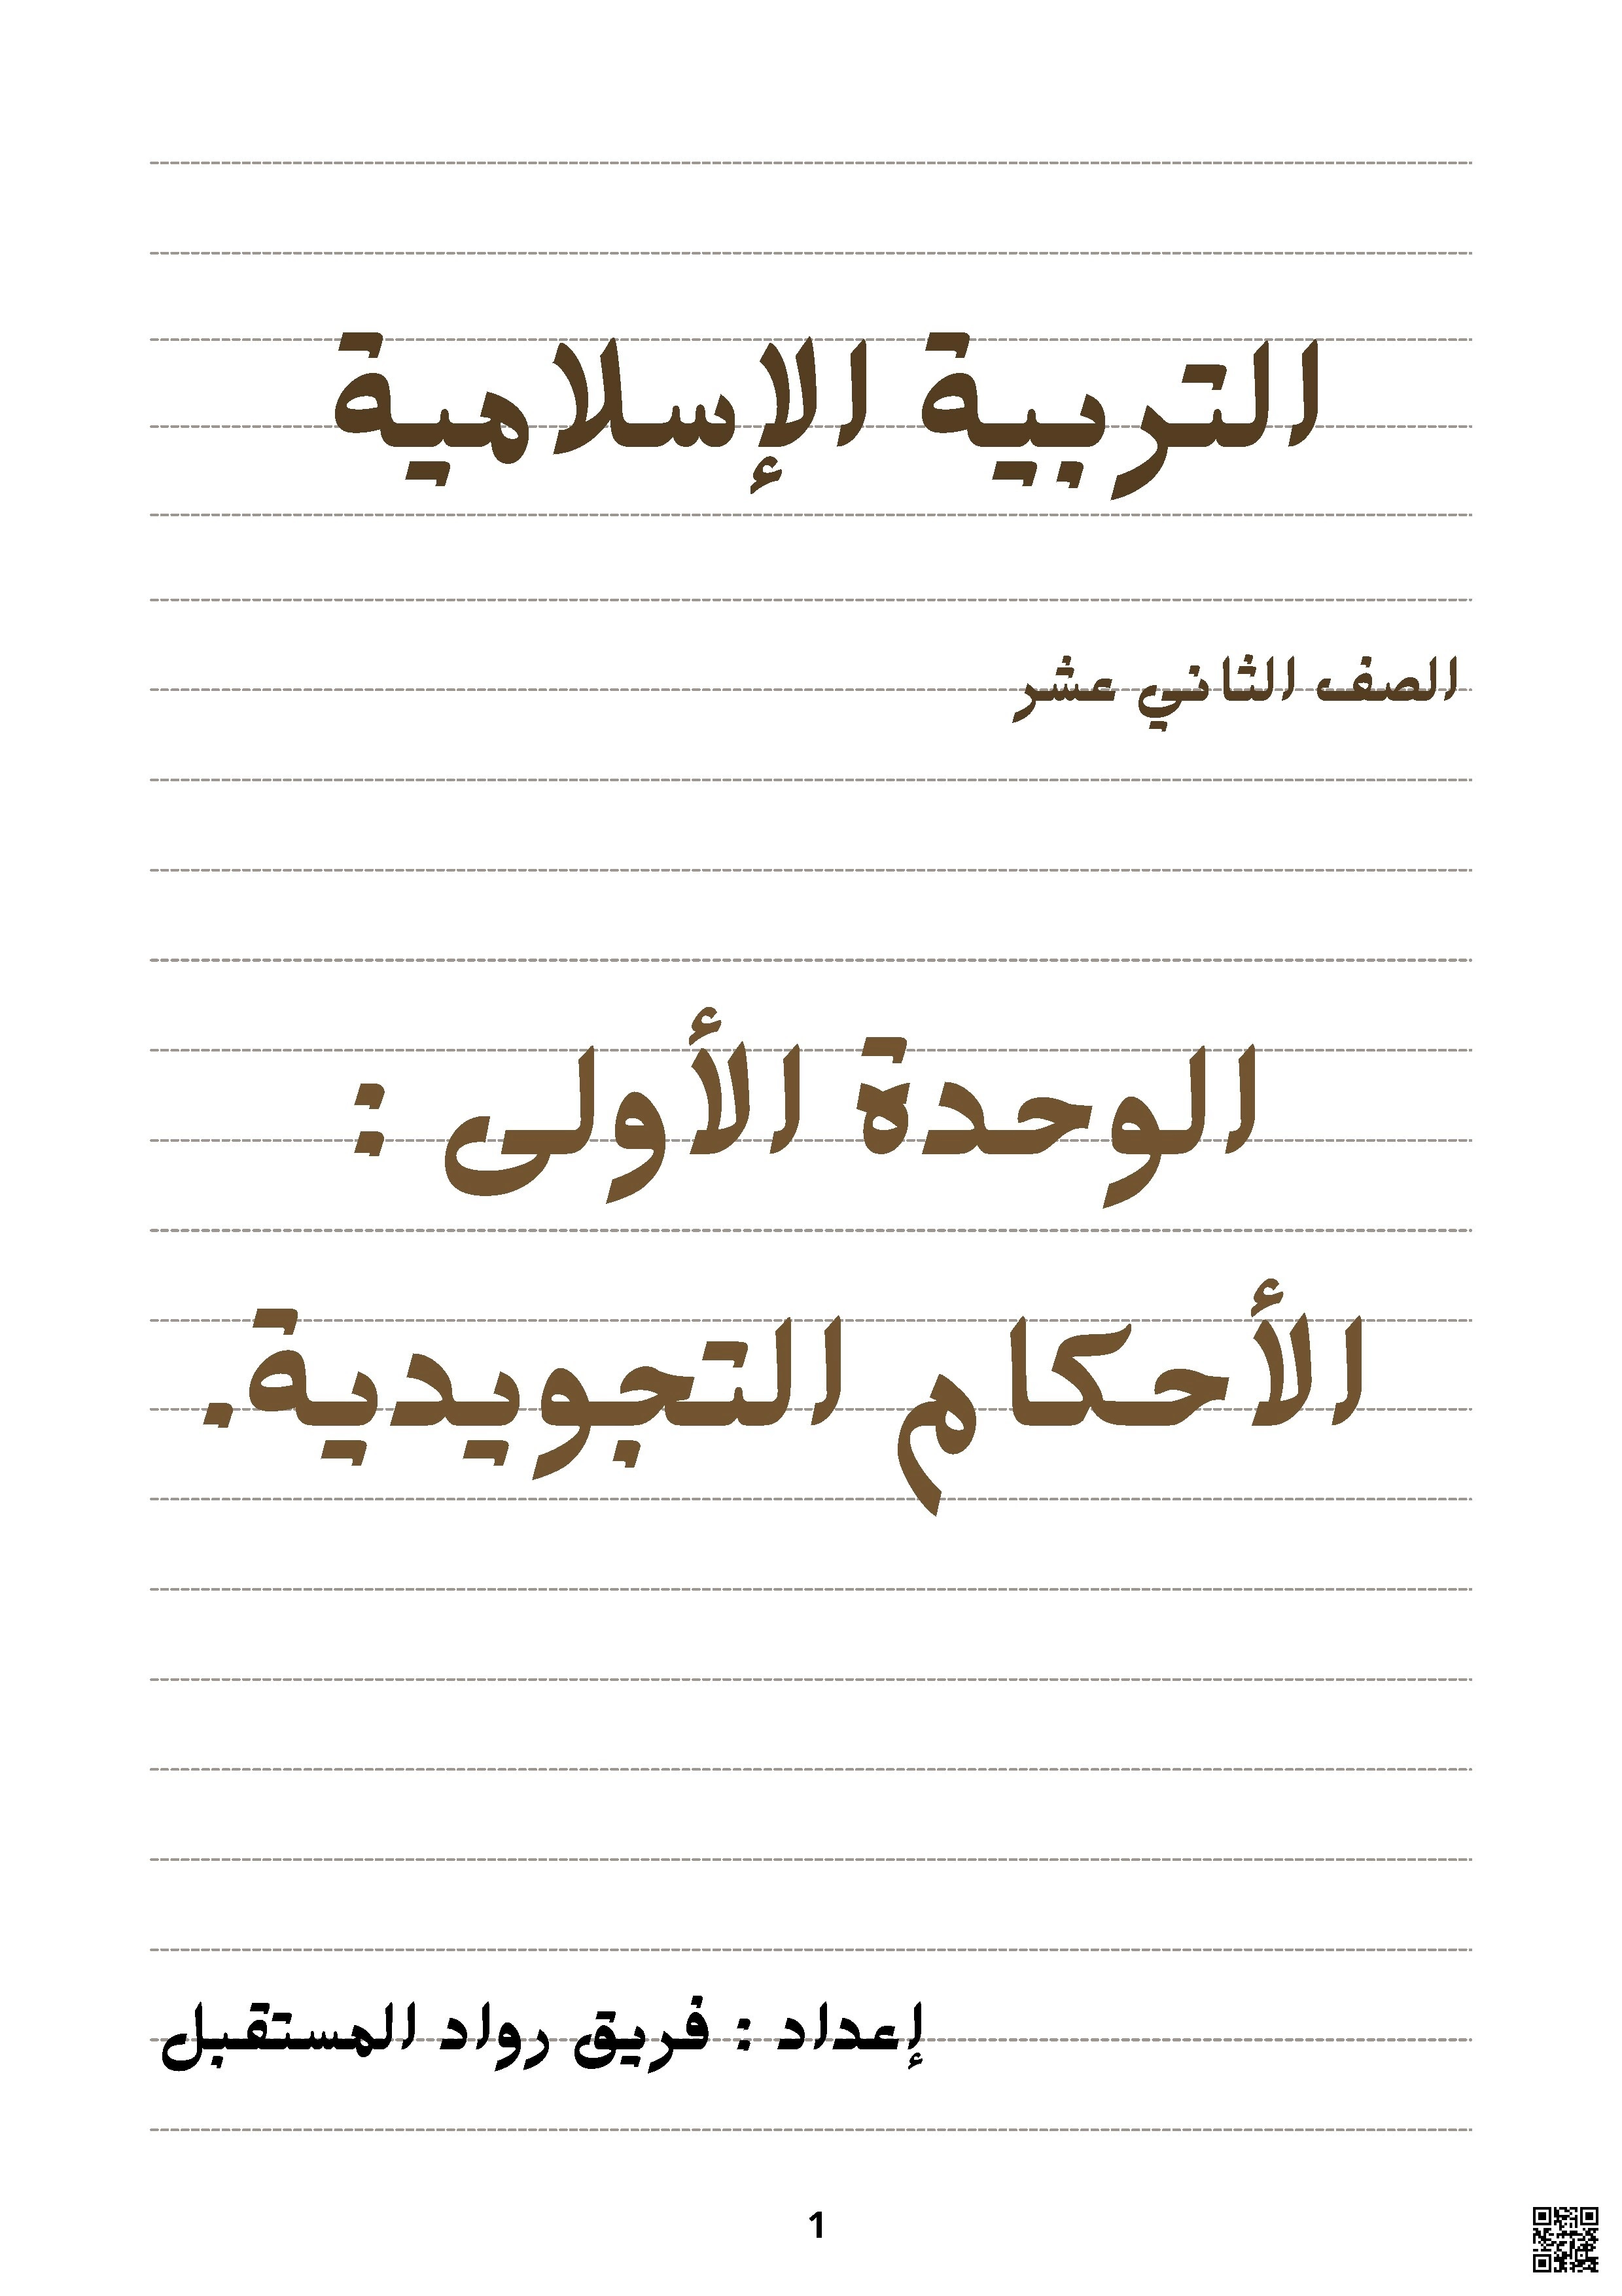 التربية الإسلامية
الصف الثاني عشر
الوحدة الأولى :
الأحكام التجويدية.
إعداد : فريق رواد المستقبل
1